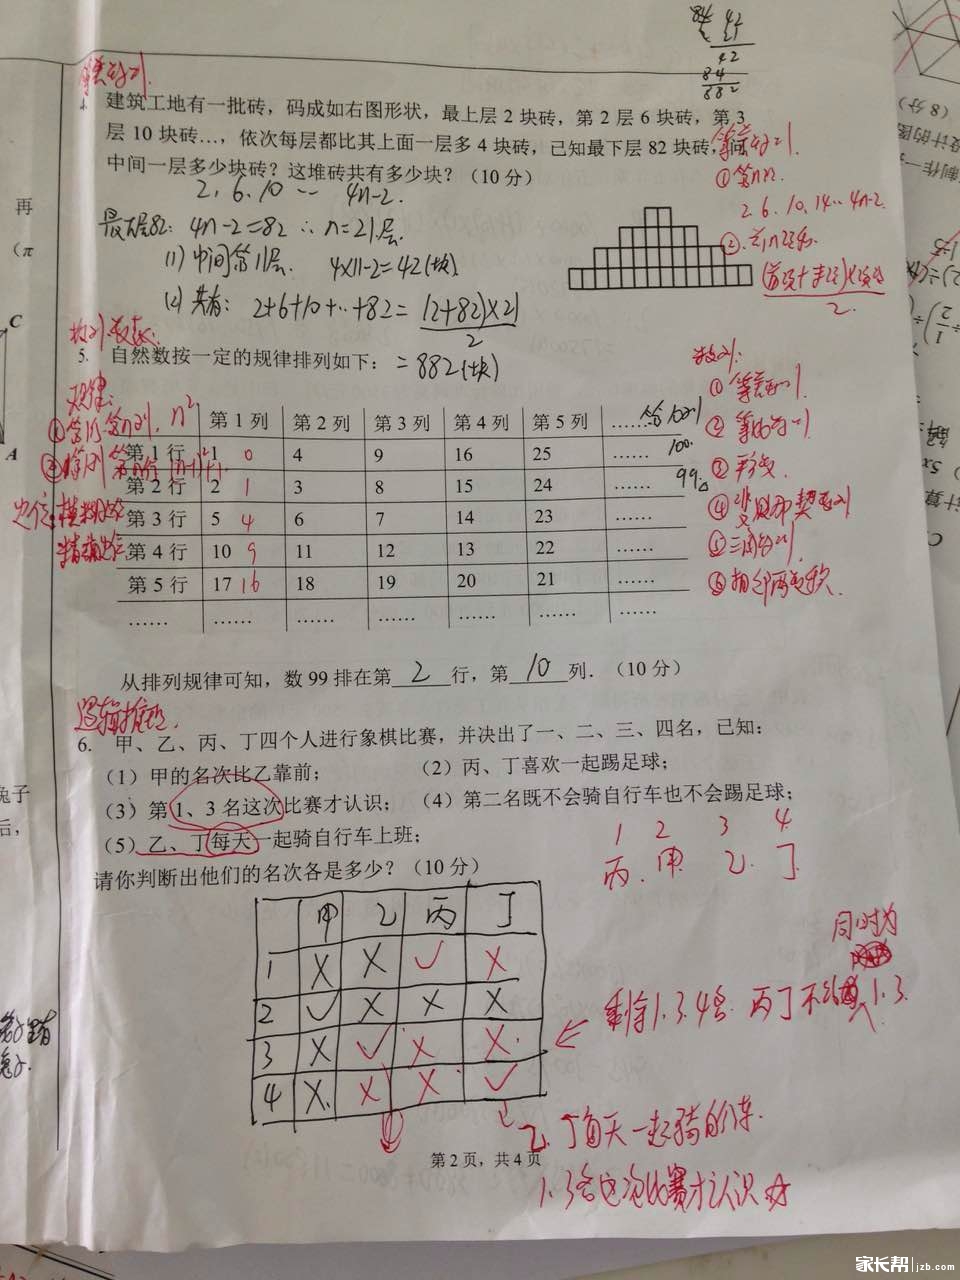 84 42
× 21
42
84
882
等差数列.
建筑工地有一批砖，码成如右图形状，最上层 2 块砖，第 2 层 6 块砖，第 3
层 10 块砖…，依次每层都比其上面一层多 4 块砖，已知最下层 82 块砖，问
中间一层多少块砖？这堆砖共有多少块？（10 分）
2、6、10 … 4n-2.
最下层82: 4n-2=82 ∴ n=21层.
(1) 中间第11层. 4×11-2=42(块).
(2) 共有: 2+6+10+…+82= (2+82)×21
2
=882(块)
等差数列.
①第n项
2.6.10.14…4n-2.
②前n项和
(首项+末项)×项数
2
数列、数表.
5. 自然数按一定的规律排列如下：
规律:
①第1行第n列. n²
②第1列 第n行 (n-1)²+1
定位:
精确定位
第 1 列 第 2 列 第 3 列 第 4 列 第 5 列 …… 第10列
第 1 行 1 0 4 9 16 25 …… 100.
第 2 行 2 1 3 8 15 24 …… 99
第 3 行 5 4 6 7 14 23 ……
第 4 行 10 9 11 12 13 22 ……
第 5 行 17 16 18 19 20 21 ……
…… …… …… …… …… …… ……
数列:
①等差数列
②等比数列
③平方
④斐波那契数列
⑤三角数列
⑥相邻两数
从排列规律可知，数 99 排在第 2 行，第 10 列．（10 分）
逻辑推理.
6. 甲、乙、丙、丁四个人进行象棋比赛，并决出了一、二、三、四名，已知：
（1）甲的名次比乙靠前； （2）丙、丁喜欢一起踢足球；
（3）第 1、3 名这次比赛才认识； （4）第二名既不会骑自行车也不会踢足球；
（5）乙、丁每天一起骑自行车上班；
请你判断出他们的名次各是多少？（10 分）
1 2 3 4
丙. 甲. 乙. 丁
甲 乙 丙 丁
1 × × ✓ ×
2 ✓ × × ×
3 × ✓ × ×
4 × × × ✓
同时为
剩余1.3.4名. 丙丁不能 1.3.
乙、丁每天一起骑自行车.
1.3名这次比赛才认识 ☆
第 2 页，共 4 页
再
（π
C
A
兔子
后，
（8 分）
家长帮 jzb.com